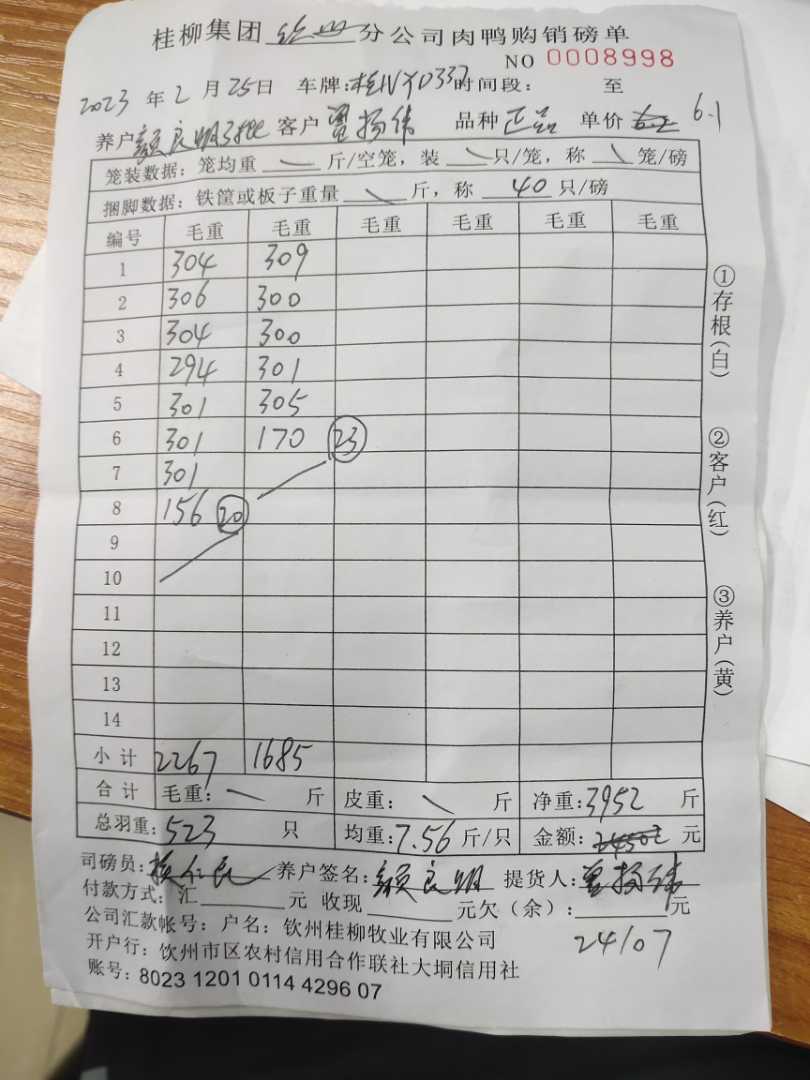 桂柳集团 分公司肉鸭购销磅单
NO 0008998
2023 年 2 月 25 日 车牌: 桂NY0337 时间段: 至
养户 颜良明 客户 曾扬伟 品种 正品 单价 6.2 6.1
笼装数据: 笼均重 斤/空笼, 装 只/笼, 称 笼/磅
捆脚数据: 铁筐或板子重量 斤, 称 40 只/磅
编号 毛重 毛重 毛重 毛重 毛重 毛重
1 304 309
2 306 300
3 304 300
4 294 301
5 301 305
6 301 170 23
7 301
8 156 20
9
10
11
12
13
14
小计 2267 1685
合计 毛重: 斤 皮重: 斤 净重: 3952 斤
总羽重: 523 只 均重: 7.56 斤/只 金额: 元
司磅员: 养户签名: 颜良明 提货人: 曾扬伟
付款方式: 汇 元 收现 元欠(余): 元
24107
公司汇款帐号: 户名: 钦州桂柳牧业有限公司
开户行: 饮州市区农村信用合作联社大垌信用社
账号: 8023 1201 0114 4296 07
①存根(白)
②客户(红)
③养户(黄)